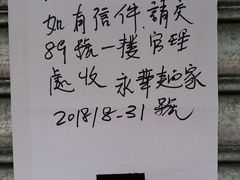 如有信件.請交
89號一樓官理
處收 永華麵家
2018/8-31號